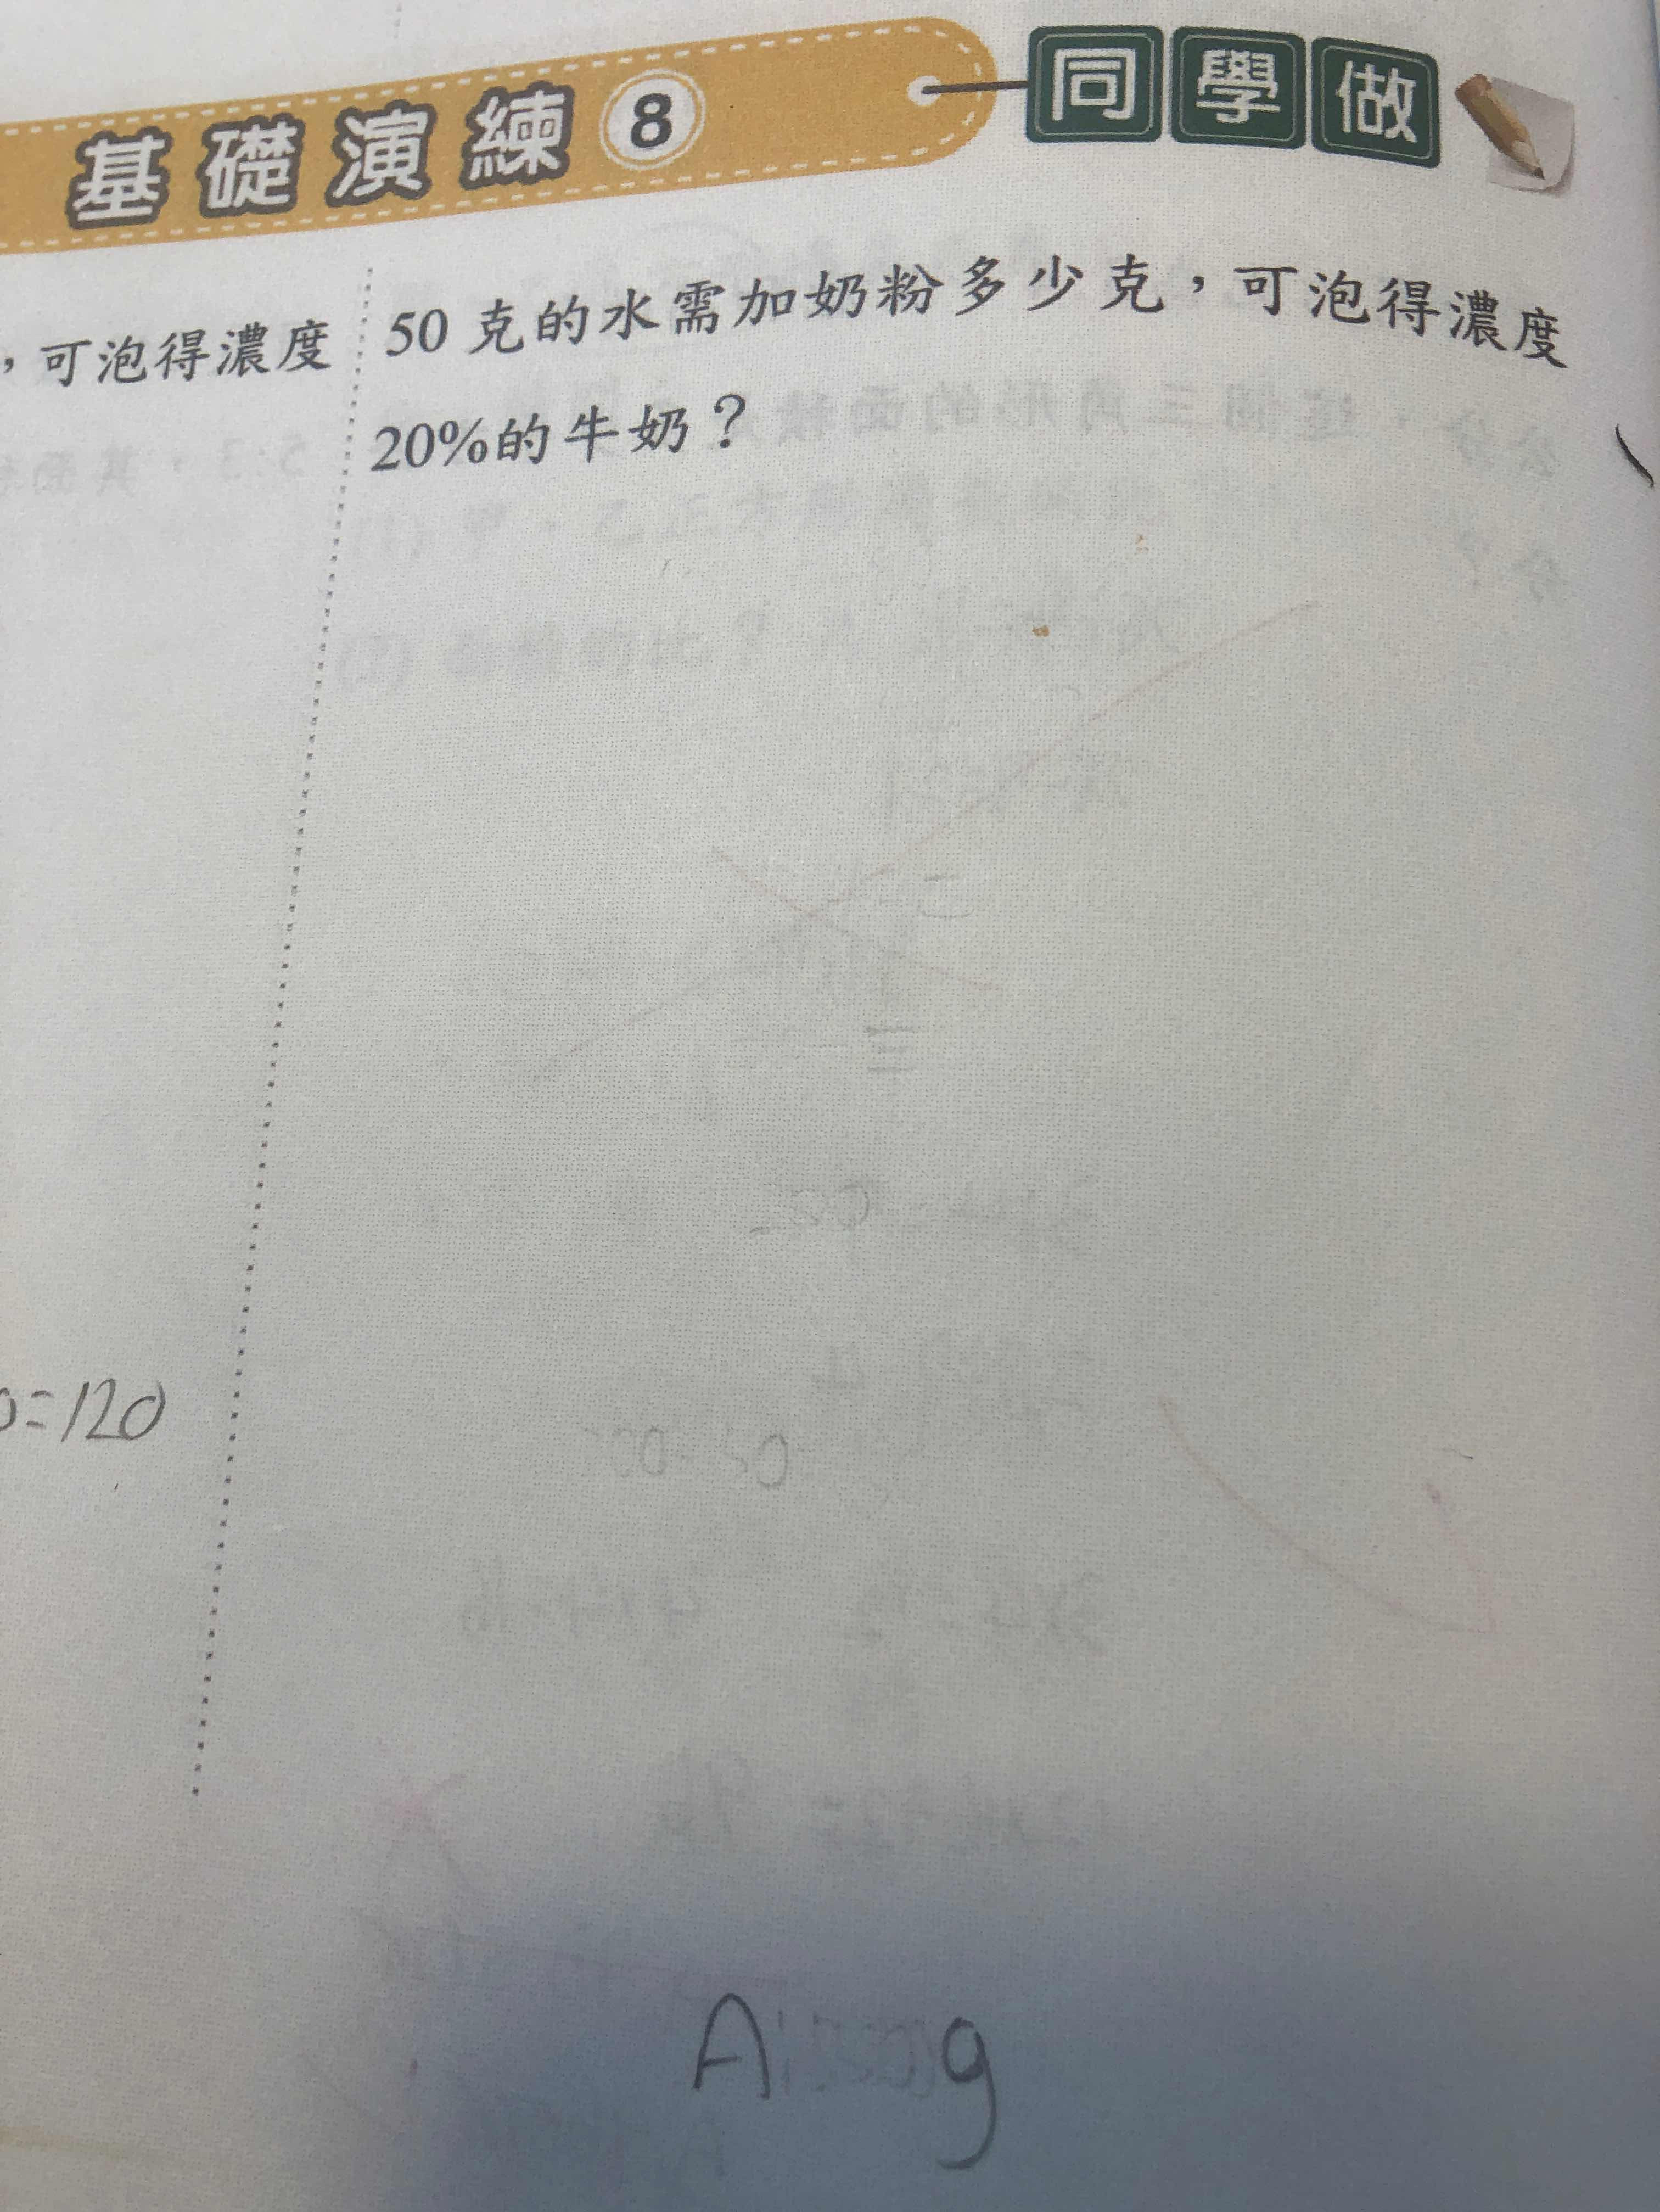 基礎演練 8 同學做
，可泡得濃度
50 克的水需加奶粉多少克，可泡得濃度
20%的牛奶？
0=120
A g